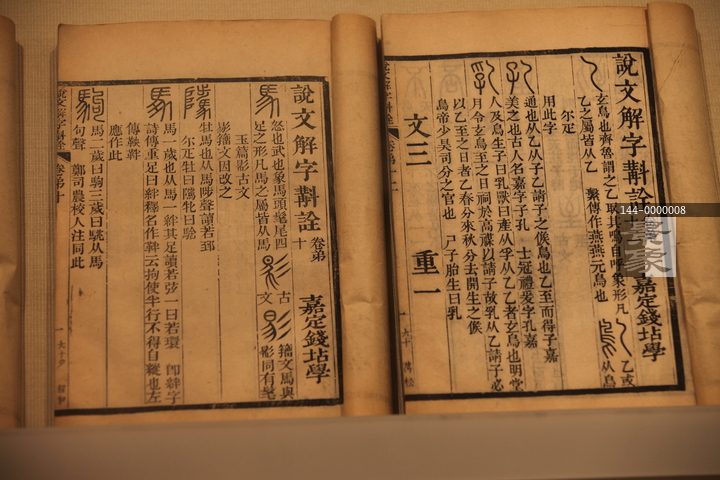 說文解字斠詮 嘉定錢坫學
玄鳥也齊魯謂之乙取其鳴自呼象形凡
乙之屬皆从乙 繫傳作燕燕元鳥也
乙或
从鳥
尔疋
用此字
通也从乙从子乙請子之候鳥也乙至而得子嘉
美之也古人名嘉字子孔 士冠禮爰字孔嘉
人及鳥生子曰乳獸曰產从孚从乙乙者玄鳥也明堂
月令玄鳥至之日祠於高禖以請子故乳从乙請子必
以乙至之日者乙春分來秋分去開生之候
鳥帝少昊司分之官也 尸子胎生曰乳
文三 重一
說文解字斠詮 卷弟十 嘉定錢坫學
怒也武也象馬頭髦尾四
足之形凡馬之屬皆从馬
古
文
籒文馬與
影同有髦
玉篇影古文
影籒文因改之
牡馬也从馬陟聲讀若郅
尔疋牡曰隲牝曰騇
馬一歲也从馬一絆其足讀若弦一曰若環
詩傳重足曰絆釋名作靽云拘使半行不得自縱也左
應作此
馬二歲曰駒三歲曰駣从馬
句聲 鄭司農校人注同此
說文解字斠詮 卷弟十
144-0000008